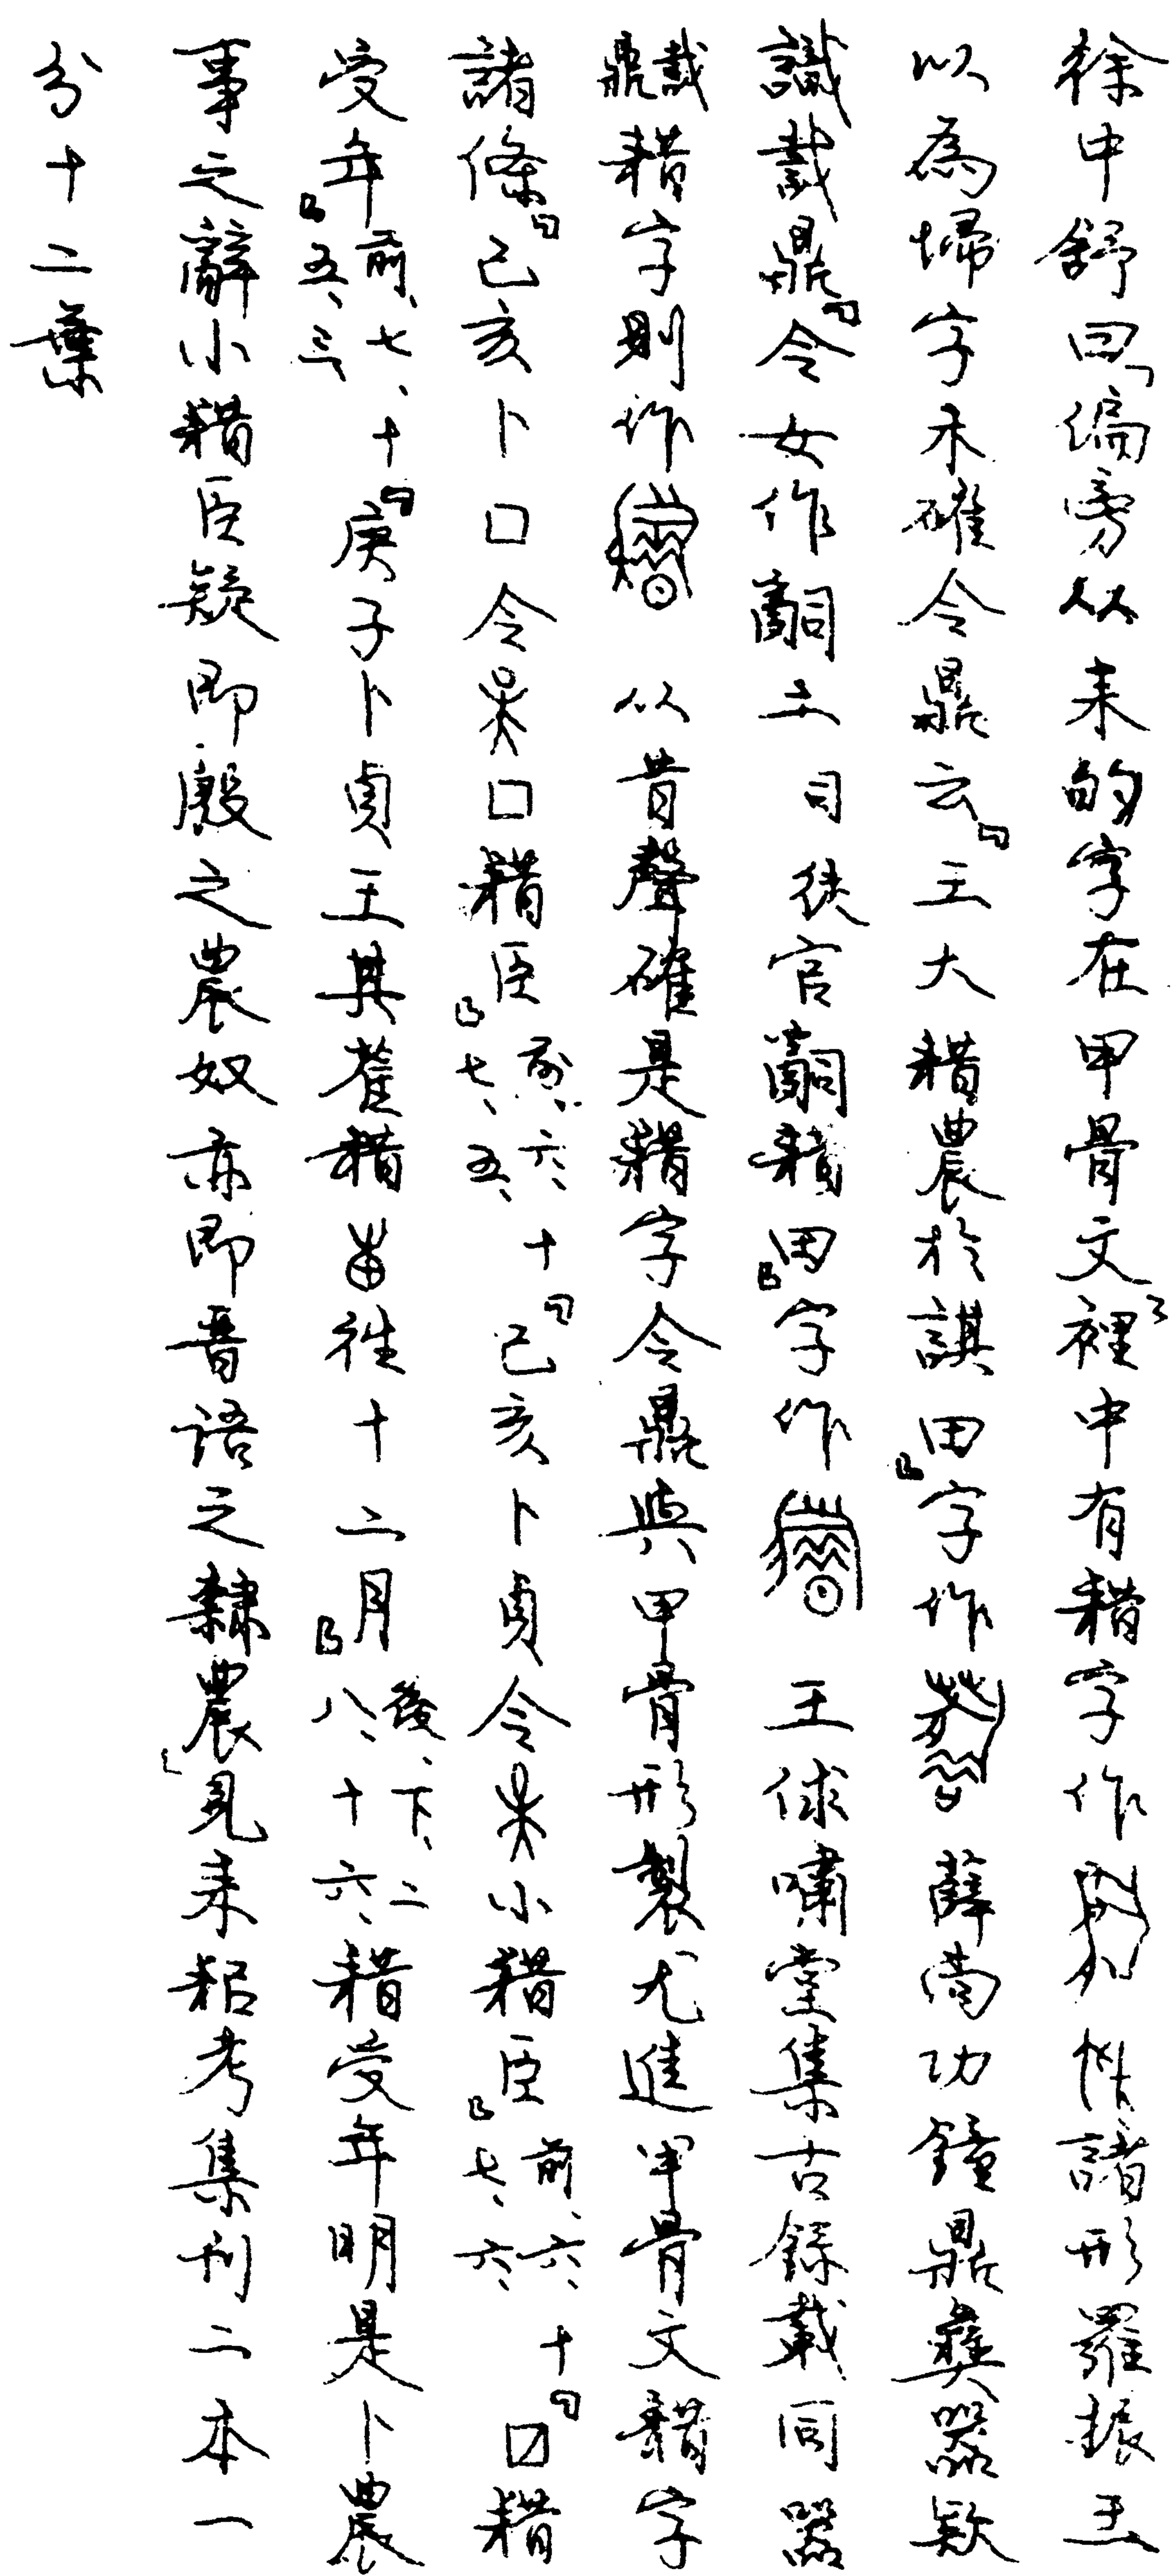 徐中舒曰「偏旁从耒的字在甲骨文裡中有耤字作諸形羅振玉
以為埽字未確令鼎云『王大耤農於諆田』字作薛尚功鐘鼎彝器款
識䵼鼎『令女作嗣土司徒官嗣耤田』字作王俅嘯堂集古錄載同器
耤字則作从昔聲確是耤字令鼎與甲骨形製尤進甲骨文耤字
諸條『己亥卜口令口耤臣』前、六、十七、五、『己亥卜貞令小耤臣』前、六、十七、六、『囗耤
受年』前、七、十五、三、『庚子卜貞王其雚耤叀往十二月』後、下、二八、十六、耤受年明是卜農
事之辭小耤臣疑即殷之農奴亦即晋語之隸農」見耒耜考集刊二本一
分十二葉